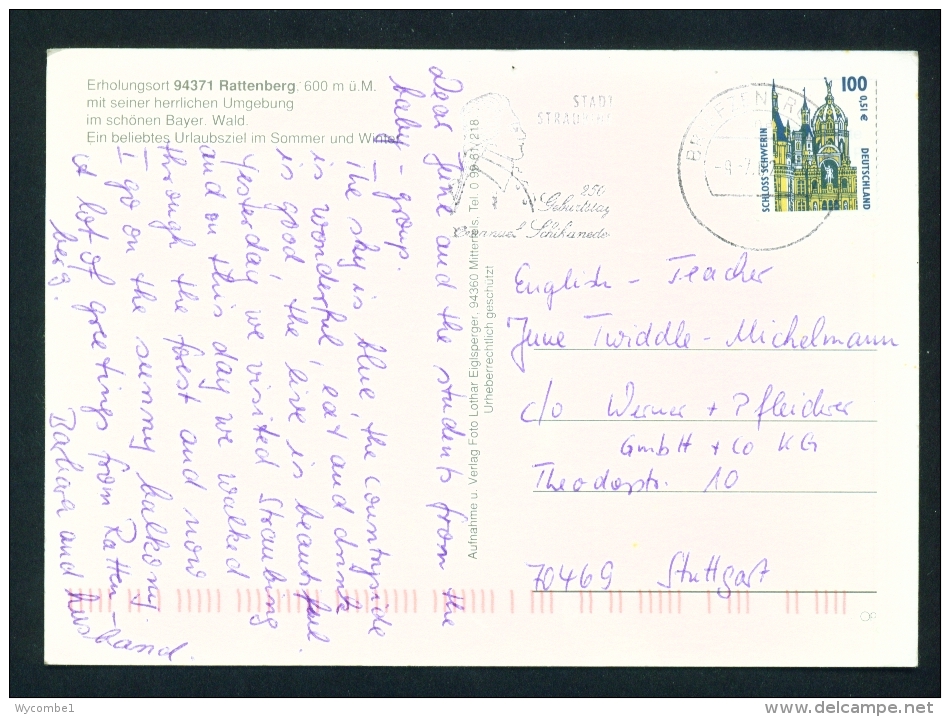 Erholungsort 94371 Rattenberg, 600 m ü.M.
mit seiner herrlichen Umgebung
im schönen Bayer. Wald.
Ein beliebtes Urlaubsziel im Sommer und Winter
Dear June and the students from the
baby-group.
The sky is blue, the countryside
is wonderful, eat and drink
is good the live is beautiful.
Yesterday we visited Straubing
and on this day we walked
through the forest and now
I go on the sunny balkony
A lot of greetings from Ratten-
berg.
Barbara and husband.
Aufnahme u. Verlag Foto Lothar Eiglsperger, 94360 Mitterfels, Tel. 0 99 61/218
Urheberrechtlich geschützt
STADT
250
Geburtstag
Emanuel Schikaneder
100
0,51 €
SCHLOSS SCHWERIN
DEUTSCHLAND
English - Teacher
June Twiddle - Michelmann
c/o Werner + Pfleiderer
GmbH + Co KG
Theodorstr. 10
70469 Stuttgart
Wycombe1
www.delcampe.net